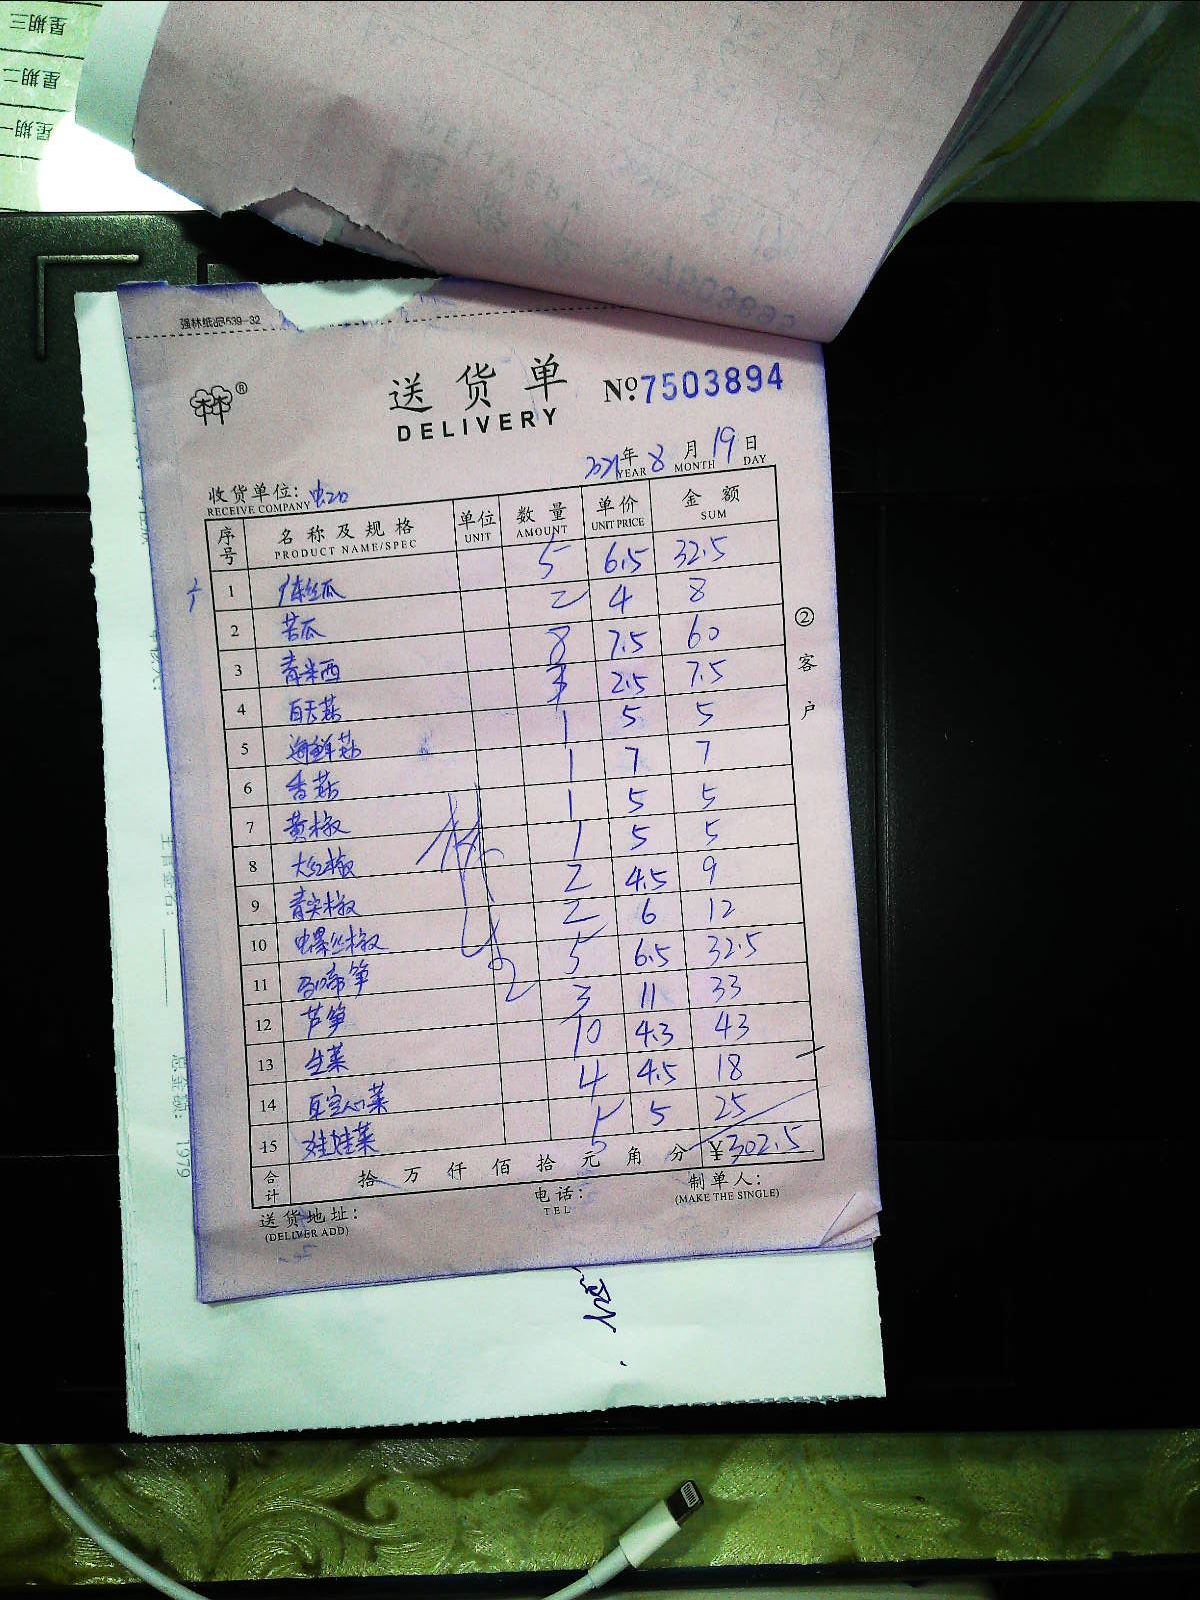 星期三
星期二
星期一
强林纸品639-32
林®
送货单 №7503894
DELIVERY
2021年 8 月 19 日
YEAR MONTH DAY
收货单位:
RECEIVE COMPANY
序号 名称及规格 单位 数量 单价 金额
PRODUCT NAME/SPEC UNIT AMOUNT UNIT PRICE SUM
1 丝瓜 5 6.5 32.5
2 苦瓜 2 4 8
3 青米西 8 7.5 60
4 白天菇 3 2.5 7.5
5 海鲜菇 1 5 5
6 香菇 1 7 7
7 黄椒 1 5 5
8 大红椒 1 5 5
9 青尖椒 2 4.5 9
10 螺丝椒 2 6 12
11 笋 5 6.5 32.5
12 芦笋 3 11 33
13 生菜 10 4.3 43
14 空心菜 4 4.5 18
15 娃娃菜 5 5 25
合计 拾 万 仟 佰 拾 元 角 分 ¥302.5
送货地址: 电话: 制单人:
(DELIVER ADD) TEL (MAKE THE SINGLE)
②客户
总金额: 1979